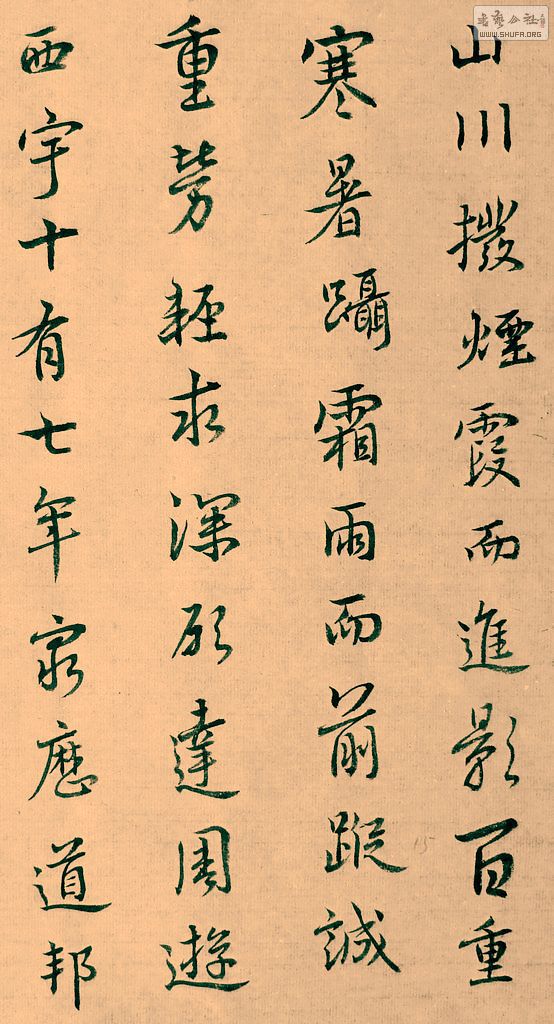 山川撥煙霞而進影百重
寒暑躡霜雨而前蹤誠
重勞輕求深願達周遊
西宇十有七年窮歷道邦
书艺公社
WWW.SHUFA.ORG